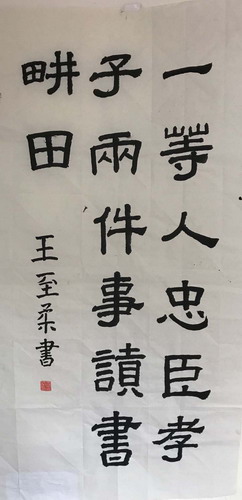 一等人忠臣孝
子兩件事讀書
畊田
王至柔書